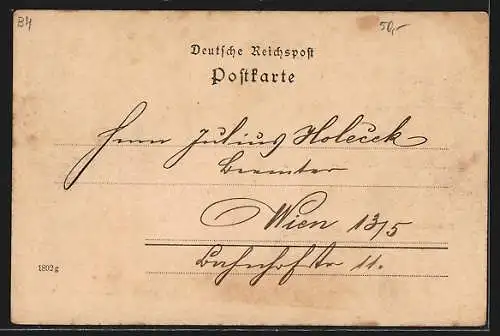 B4
50,-
Deutsche Reichspost
Postkarte
Herrn Julius Holecek
Beamter
Wien 13/5
Bahnhofstr 11.
1802g